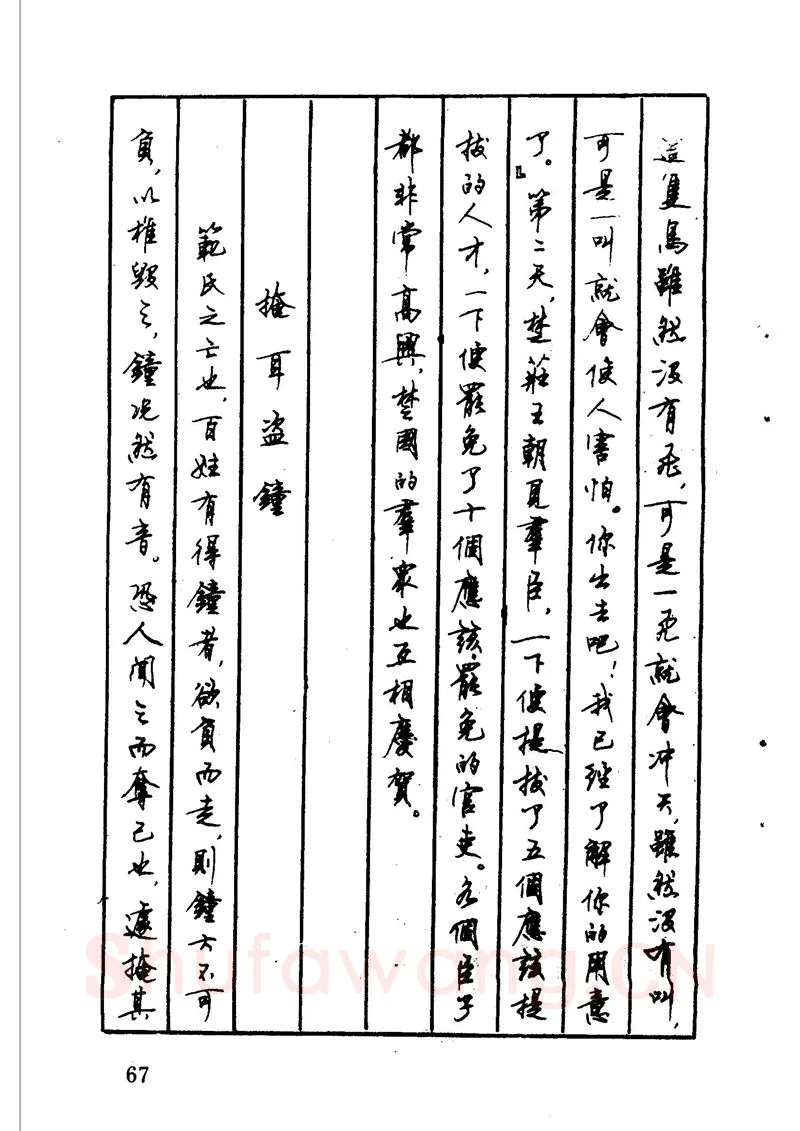 這隻鳥雖然没有飛，可是一飛就會冲天，雖然没有叫，
可是一叫就會使人害怕。你出去吧！我已經了解你的用意
了。」第二天，楚莊王朝見羣臣，一下便提拔了五個應該提
拔的人才，一下便罷免了十個應該罷免的官吏。各個臣子
都非常高興，楚國的羣衆也互相慶賀。
掩耳盗鐘
範氏之亡也，百姓有得鐘者，欲負而走，則鐘大不可
負，以椎毁之，鐘况然有音。恐人聞之而奪己也，遽掩其
67
Shufawang.CN